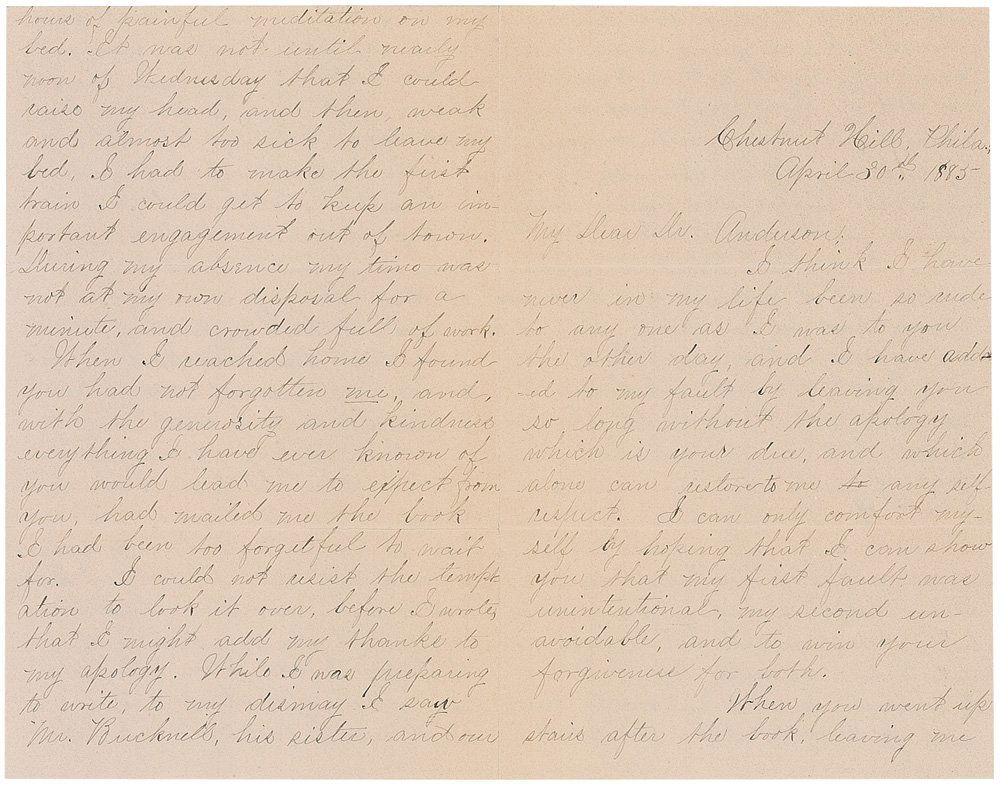 Chestnut Hill, Phila.,
April 30th 1885
My Dear Dr. Anderson,
I think I have
never in my life been so rude
to any one as I was to you
the other day, and I have add-
-ed to my fault by leaving you
so long without the apology
which is your due, and which
alone can restore to me to any self-
respect. I can only comfort my-
self by hoping that I can show
you that my first fault was
unintentional, my second un-
avoidable, and to win your
forgiveness for both.
When you went up
stairs after the book, leaving me
hours of painful meditation on my
bed. It was not until nearly
noon of Wednesday that I could
raise my head, and then, weak
and almost too sick to leave my
bed, I had to make the first
train I could get to keep an im-
portant engagement out of town.
During my absence my time was
not at my own disposal for a
minute, and crowded full of work.
When I reached home I found
you had not forgotten me, and,
with the generosity and kindness
everything I have ever known of
you would lead me to expect from
you, had mailed me the book
I had been too forgetful to wait
for. I could not resist the tempt-
ation to look it over, before I wrote,
that I might add my thanks to
my apology. While I was preparing
to write, to my dismay I saw
Mr. Bucknell, his sister, and our